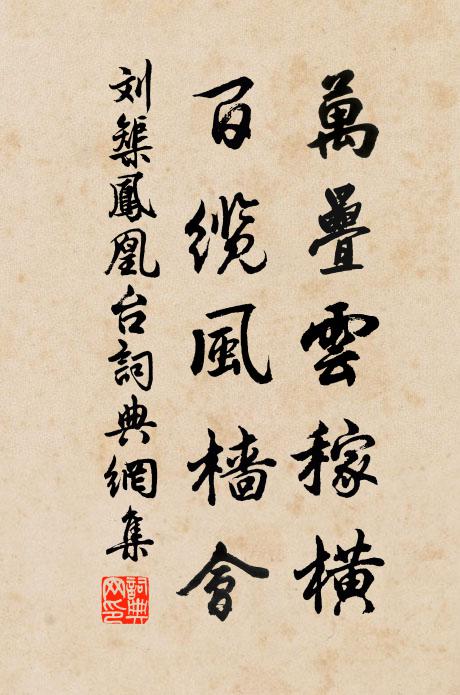 萬疊雲稼橫
百缆風檣會
刘槩鳳凰台詞典網集
詞典網印